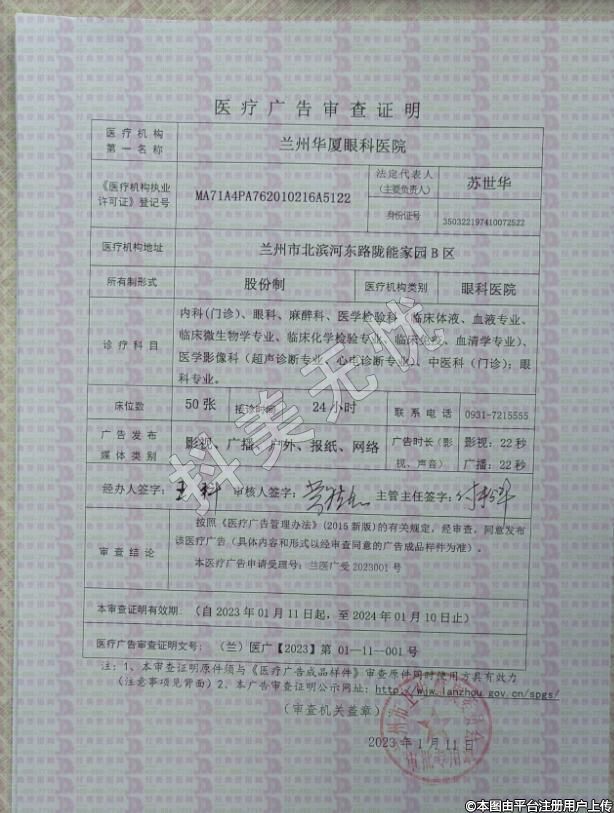 医疗广告审查证明
医疗机构
第一名称
兰州华厦眼科医院
《医疗机构执业
许可证》登记号
MA71A4PA762010216A5122
法定代表人
(主要负责人)
苏世华
身份证号
350322197410072522
医疗机构地址
兰州市北滨河东路陇能家园B区
所有制形式
股份制
医疗机构类别
眼科医院
诊疗科目
内科(门诊)、眼科、麻醉科、医学检验科(临床体液、血液专业、
临床微生物学专业、临床化学检验专业、临床免疫、血清学专业)、
医学影像科(超声诊断专业、心电诊断专业)、中医科(门诊);眼
科专业。
床位数
50张
接诊时间
24小时
联系电话
0931-7215555
广告发布
媒体类别
影视、广播、户外、报纸、网络
广告时长(影
视、声音)
影视:22秒
广播:22秒
经办人签字:
审核人签字:
主管主任签字:
审查结论
按照《医疗广告管理办法》(2015新版)的有关规定,经审查,同意发布
该医疗广告(具体内容和形式以经审查同意的广告成品样件为准)。
本医疗广告申请受理号:兰医广受2023001号
本审查证明有效期:(自2023年01月11日起,至2024年01月10日止)
医疗广告审查证明文号:(兰)医广【2023】第01-11-001号
注:1、本审查证明原件须与《医疗广告成品样件》审查原件同时使用方具有效力
(注意事项见背面)2、本广告审查证明公示网址:http://www.lanzhou.gov.cn/spgs/
(审查机关盖章)
2023年1月11日
抖美无忧
©本图由平台注册用户上传